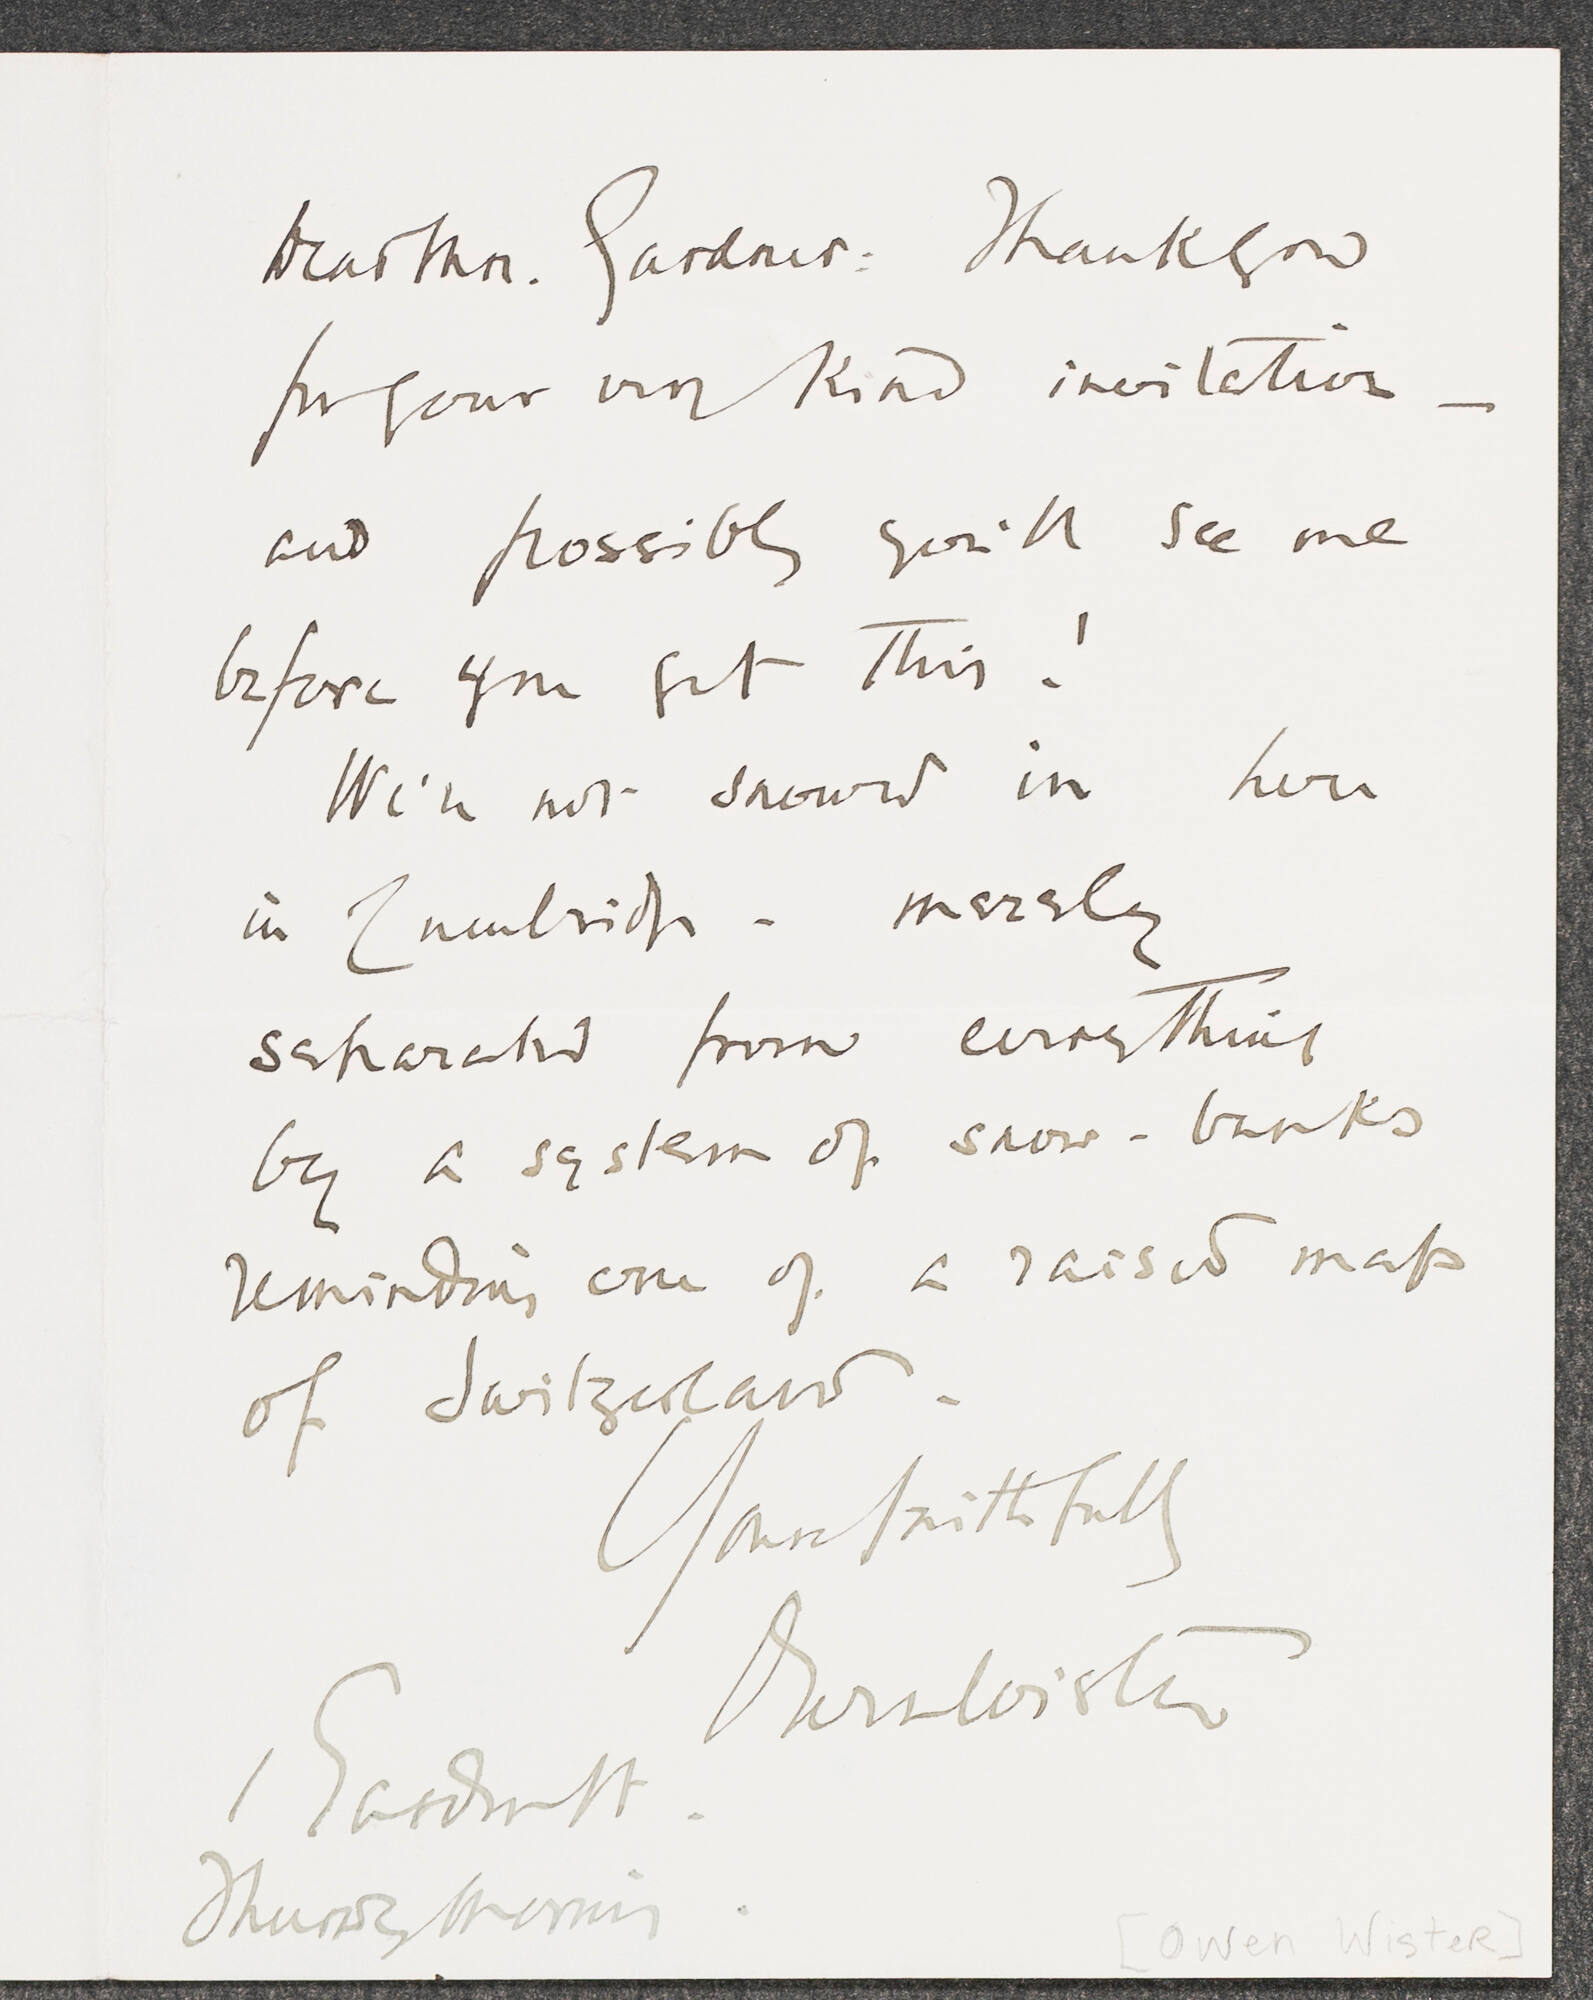 Dear Mrs. Gardner: Thank you
for your very kind invitation —
and possibly you'll see me
before you get this!
We're not snowed in here
in Cambridge - merely
separated from everything
by a system of snow-banks
reminding one of a raised map
of Switzerland -
Yours faithfully
Owen Wister
1 Garden St.
Thursday Morning.
[Owen Wister]